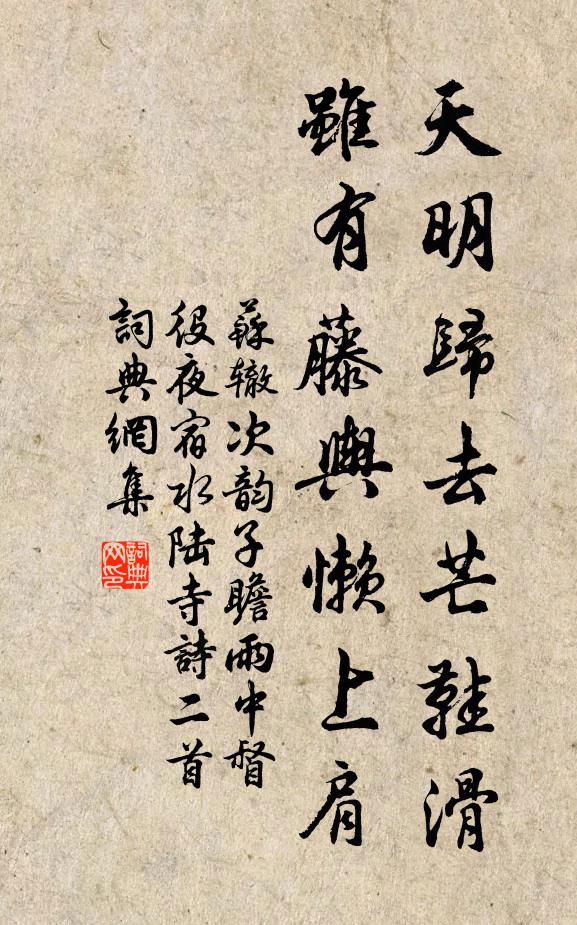 天明歸去芒鞋滑
雖有藤輿懶上肩
蘇轍次韵子瞻雨中督
役夜宿水陸寺詩二首
詞典網集
詞典
网印